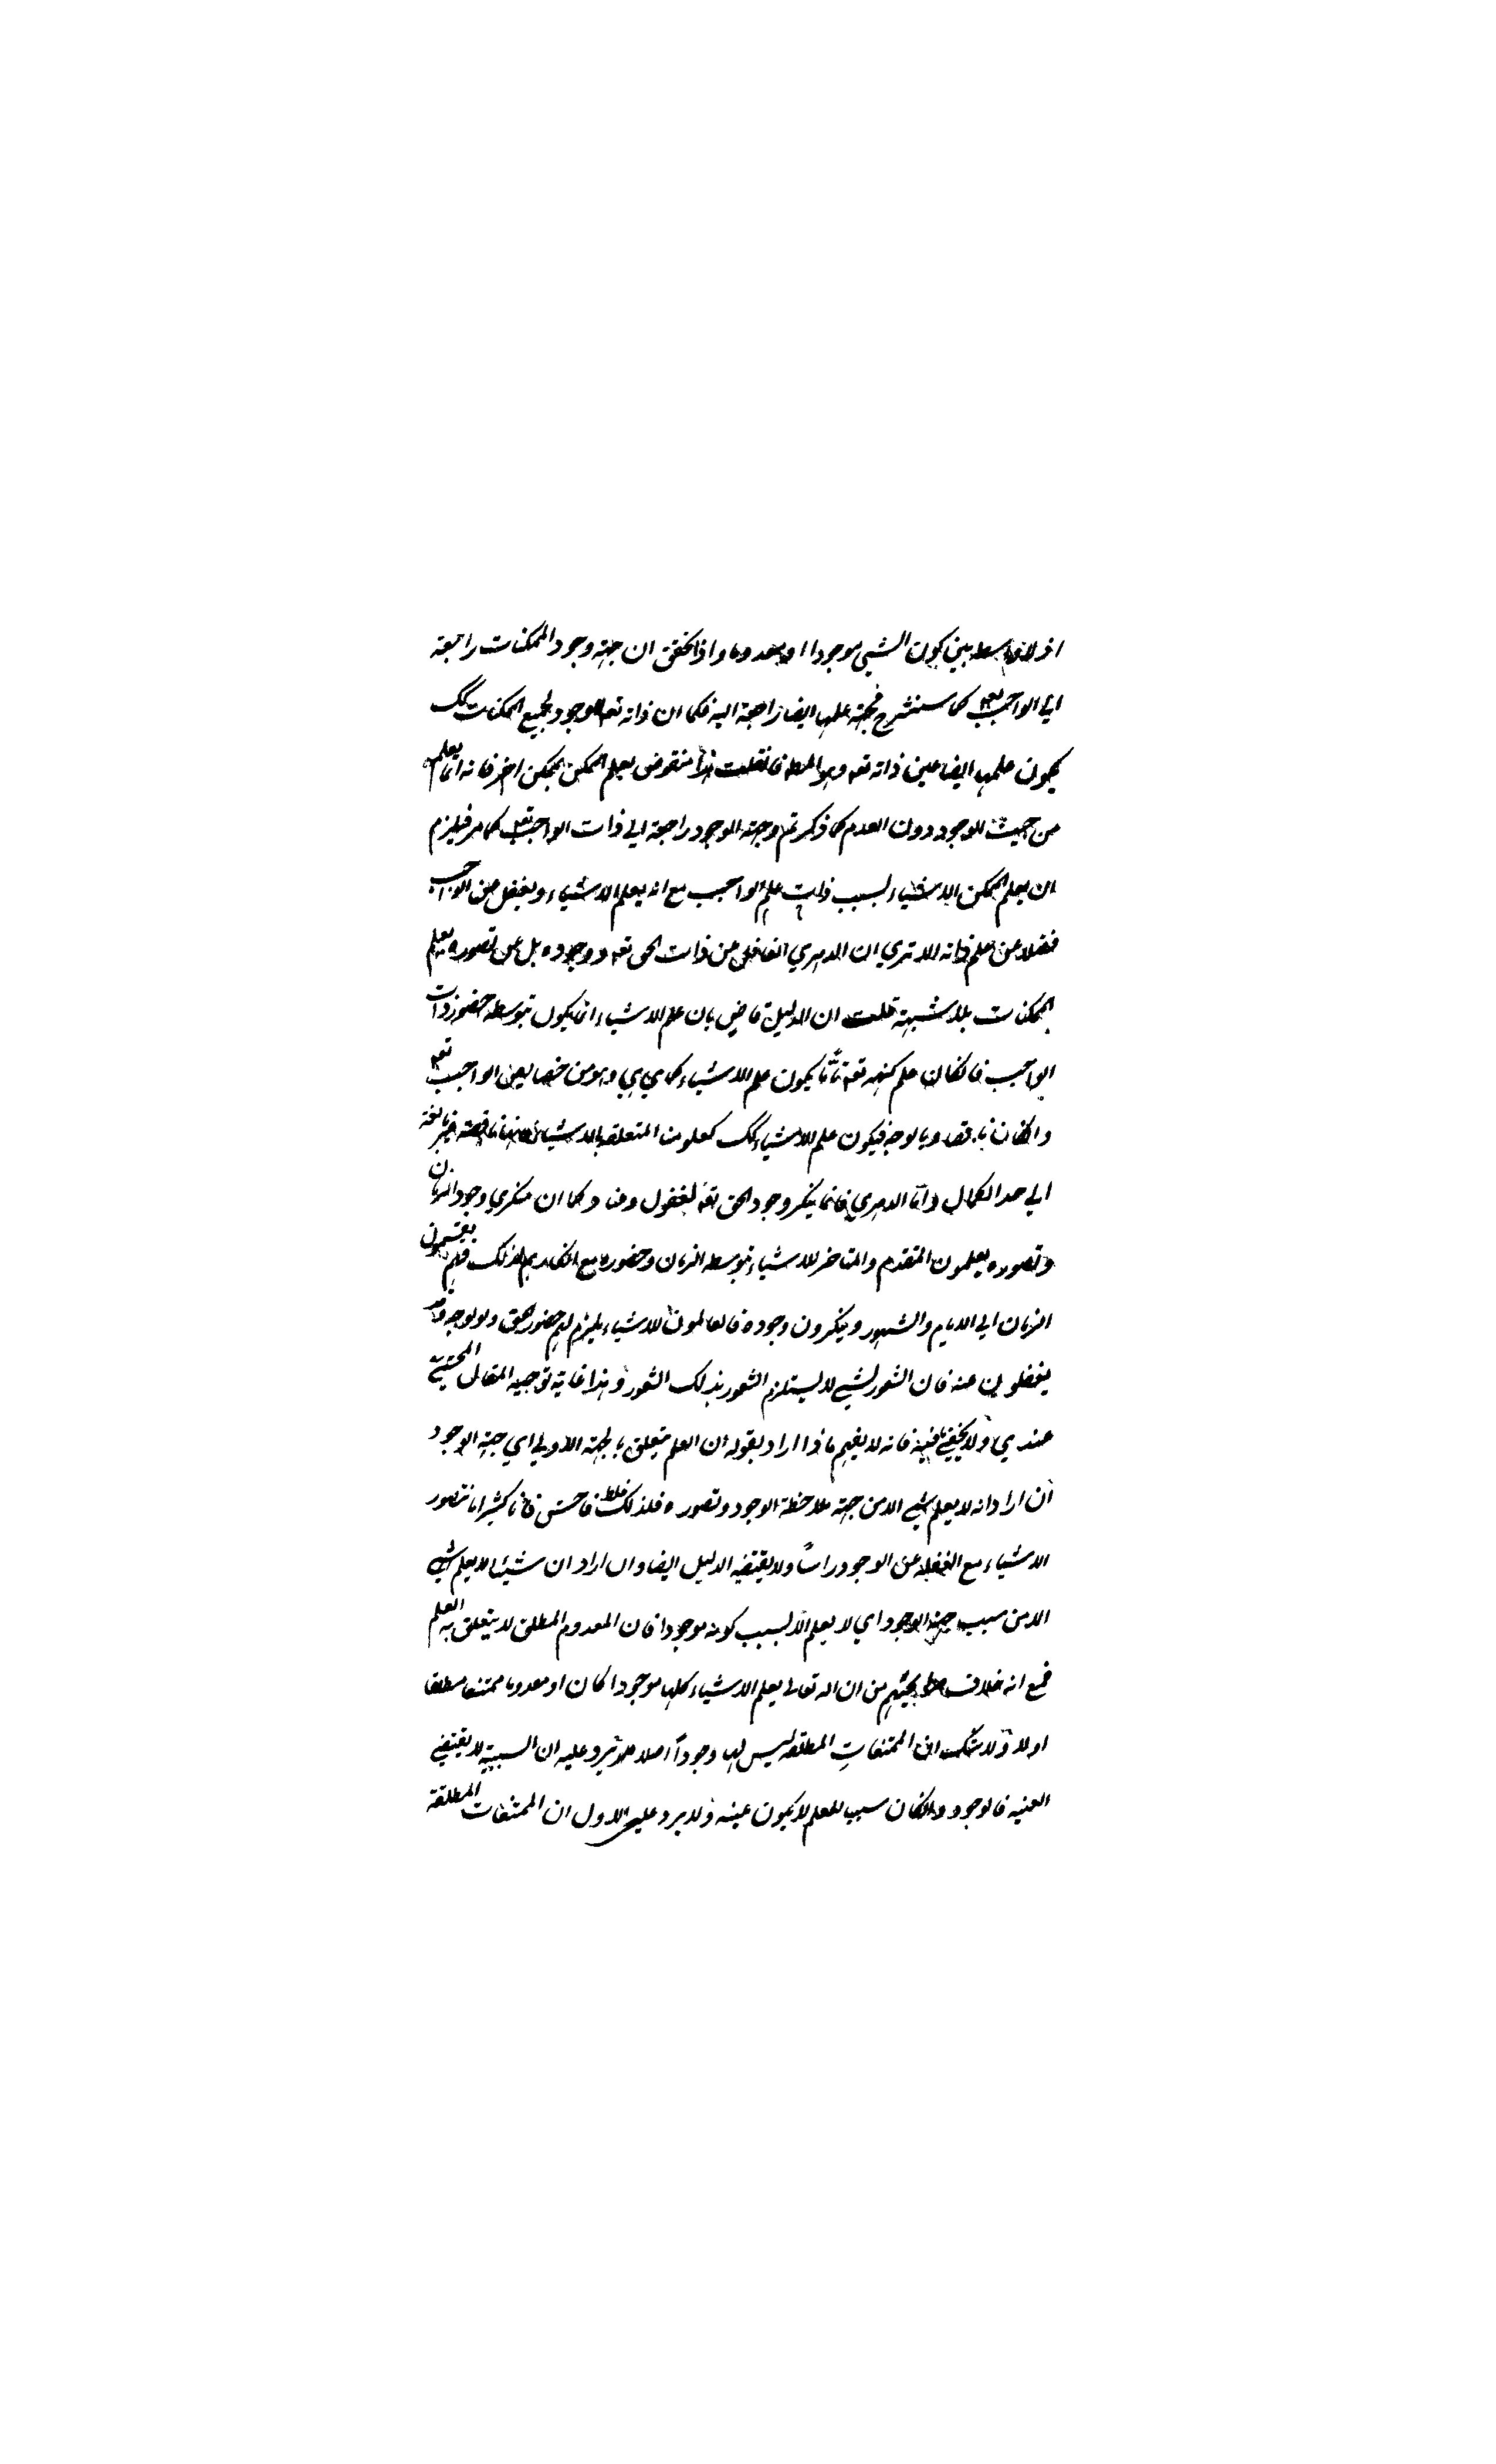 اذ لا واسطه بين كون الشيى موجودا او معدوما واذا تحقق ان جهة وجود الممكنات راجعة
الي الواجب تعه كما سنشرح فجهة علمها ايضا راجعة اليه فكما ان ذاته تعه الوجود لجميع الممكنات كك
يكون علمها ايضا عين ذاته تعه وهو المط فانقلت هذا منقوض بعلم الممكن بممكن اخر فانه انما يعلم
من حيث الوجود دون العدم كما ذكرتم وجهة الوجود راجعة الي ذات الواجب تعه كما مر فيلزم
ان يعلم الممكن الاشياء لسبب ذات علم الواجب مع انه يعلم الاشياء ويغفل عن الواجب
فضلا عن علم ذاته الا تري ان الدهري الغافل عن ذات الحق تعه ووجوده بل عن تصوره يعلم
الممكنات بلا شبهة قلت ان الدليل قاض بان علم الاشياء انما يكون بتوسط حضور ذات
الواجب فانكان علم كنهه تعه تامًّا يكون علم الاشياء كما هي هي وهو من خصايص الواجب تعه
وانكان ناقصا وبالوجه فيكون علم للاشياء كك كعلومنا المتعلقه بالاشياء فانها ناقصة غير بالغة
الي حد الكمال واما الدهري فانما ينكر وجود الحق تعه لغفول وعناد كما ان منكري وجود الزمان
وتصوره يعلمون المتقدم والمتاخر للاشياء بتوسط الزمان وحضوره مع انكارهم لذلك فهم يقسمون
الزمان الي الايام والشهور وينكرون وجوده فالعالمون للاشياء يلزم لهم حضور الحق ولو بوجه وقد
يغفلون عنه فان الشعور لشيى لا يستلزم الشعور بذلك الشعور وهذا غاية توجيه المقال المحشي
عندي ولا يخفي مافيه فانه لا يفهم ماذا اراد بقوله ان العلم يتعلق بالجهة الاولي اي جهة الوجود
ان اراد انه لا يعلم شيى الا من جهة ملاحظة الوجود وتصوره فلذلك غلط فاحش فانا كثيرا ما نتصور
الاشياء مع الغفلة عن الوجود راسًا ولا يقتضيه الدليل ايضا وان اراد ان شيئا لا يعلم لشيى
الا من سبب جهة الوجود اي لا يعلم الا لسبب كونه موجودا فان المعدوم المطلق لا يتعلق به العلم
فمع انه خلاف من ان اله تعالي يعلم الاشياء كلها موجودا كان او معدوما ممتنعا مطلقا
اولا ولا شك ان الممتنعاتِ المطلقه ليس لها وجوداً اصلا يرد عليه ان السببية لا يقتضي
العينيه فالوجود وانكان سببا للعلم لا يكون عينه ولا يرد علي الاول ان الممتنعات المطلقة